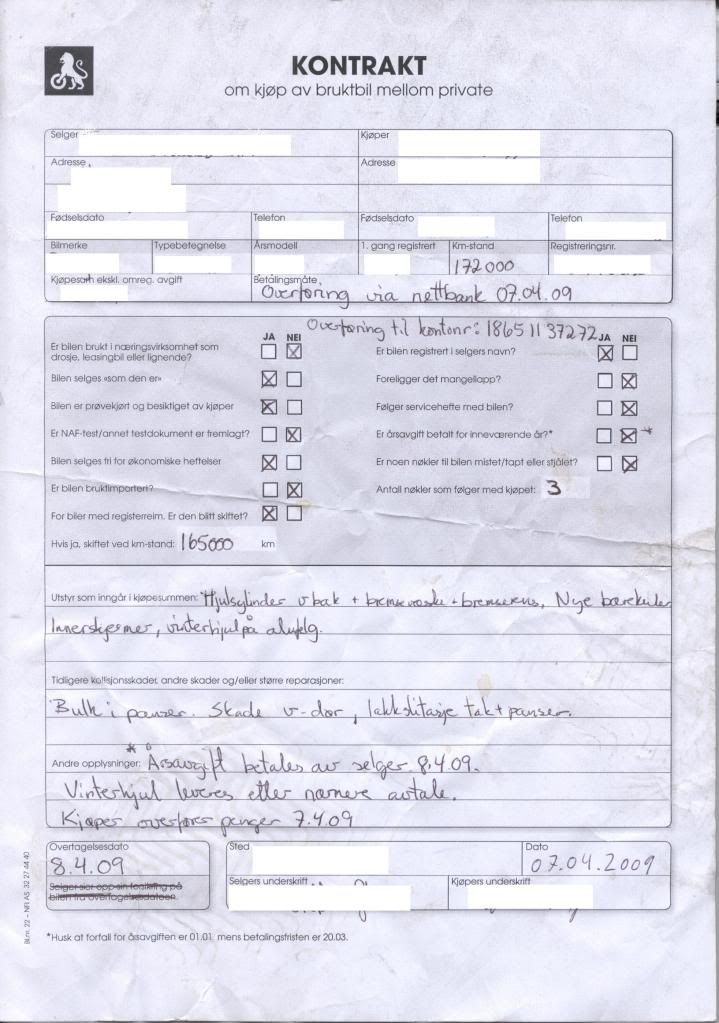 KONTRAKT
om kjøp av bruktbil mellom private
Selger Kjøper
Adresse Adresse
Fødselsdato Telefon Fødselsdato Telefon
Bilmerke Typebetegnelse Årsmodell 1. gang registrert Km-stand Registreringsnr.
172000
Kjøpesum ekskl. omreg. avgift Betalingsmåte,
Overføring via nettbank 07.04.09
Overføring til kontonr: 1865 11 37272
JA NEI JA NEI
Er bilen brukt i næringsvirksomhet som
drosje, leasingbil eller lignende? Er bilen registrert i selgers navn?
Bilen selges «som den er» Foreligger det mangellapp?
Bilen er prøvekjørt og besiktiget av kjøper Følger servicehefte med bilen?
Er NAF-test/annet testdokument er fremlagt? Er årsavgift betalt for inneværende år?* *
Bilen selges fri for økonomiske heftelser Er noen nøkler til bilen mistet/tapt eller stjålet?
Er bilen bruktimportert? Antall nøkler som følger med kjøpet: 3
For biler med registerreim. Er den blitt skiftet?
Hvis ja, skiftet ved km-stand: 165000 km
Utstyr som inngår i kjøpesummen: Hjulsylinder v bak + bremsevæske + bremserens, Nye bærekuler
Innerskjermer, vinterhjul på alufelg.
Tidligere kollisjonsskader, andre skader og/eller større reparasjoner:
Bulk i panser. Skade v-dør, lakkslitasje tak + panser.
Andre opplysninger: * Årsavgift betales av selger 8.4.09.
Vinterhjul leveres etter nærmere avtale.
Kjøper overfører penger 7.4.09
Overtagelsesdato Sted Dato
8.4.09 07.04.2009
Selger sier opp sin forsikring på
bilen fra overtagelsesdatoen.
Selgers underskrift Kjøpers underskrift
*Husk at forfall for årsavgiften er 01.01 mens betalingsfristen er 20.03.
Bl.nr. 22 - NFI AS 32 27 44 40